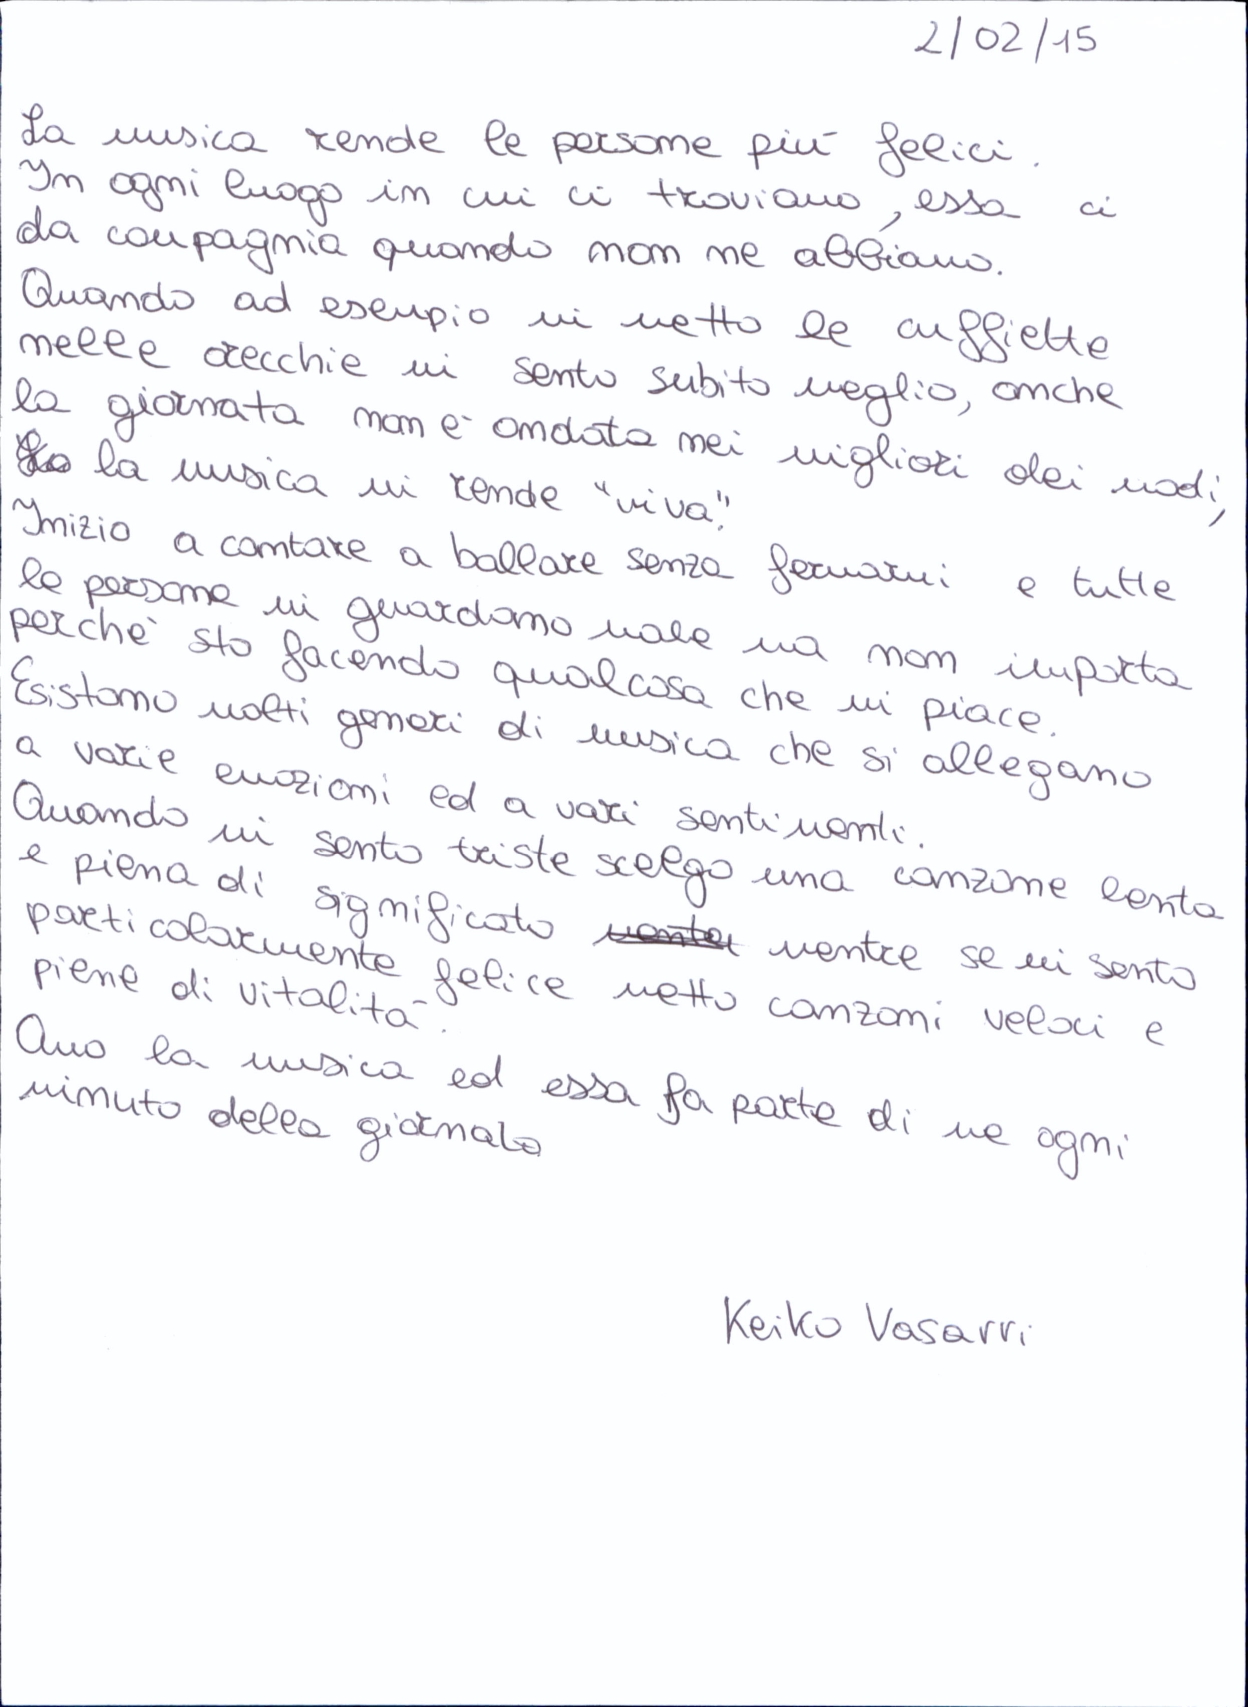 2/02/15
La musica rende le persone più felici.
In ogni luogo in cui ci troviamo, essa ci
da compagnia quando non ne abbiamo.
Quando ad esempio mi metto le cuffiette
nelle orecchie mi sento subito meglio, anche
la giornata non è andata nei migliori dei modi,
la musica mi rende "viva".
Inizio a cantare a ballare senza fermarmi e tutte
le persone mi guardano male ma non importa
perchè sto facendo qualcosa che mi piace.
Esistono molti generi di musica che si allegano
a varie emozioni ed a vari sentimenti.
Quando mi sento triste scelgo una canzone lenta
e piena di significato mentre se mi sento
particolarmente felice metto canzoni veloci e
piene di vitalità.
Amo la musica ed essa fa parte di me ogni
minuto della giornata
Keiko Vasarri